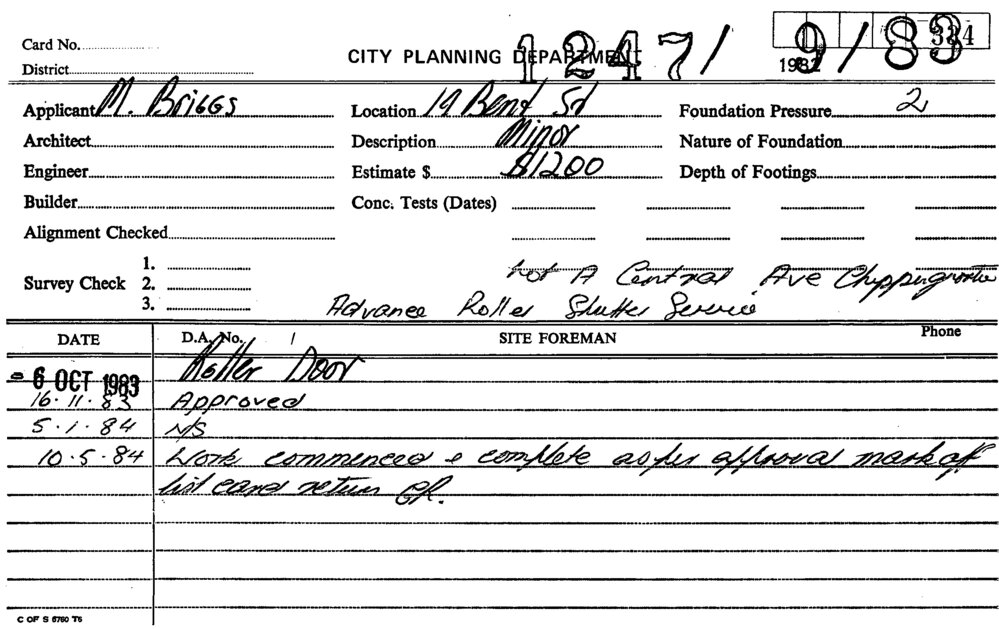 Card No.
CITY PLANNING DEPARTMENT
12471/ 9/83
334
1982
District
Applicant M. Briggs
Location 19 Bent St
Foundation Pressure 2
Architect
Description Minor
Nature of Foundation
Engineer
Estimate $ $1200
Depth of Footings
Builder
Conc. Tests (Dates)
Alignment Checked
Survey Check
1.
2.
3.
Lot A Central Ave Chippingnorton
Advance Roller Shutter Service
DATE
D.A. No.
SITE FOREMAN
Phone
- 6 OCT 1983 Roller Door
16.11.83 Approved
5.1.84 N/S
10.5.84 Work commenced & complete as per approval mark off
list card return
C OF S 6760 T6